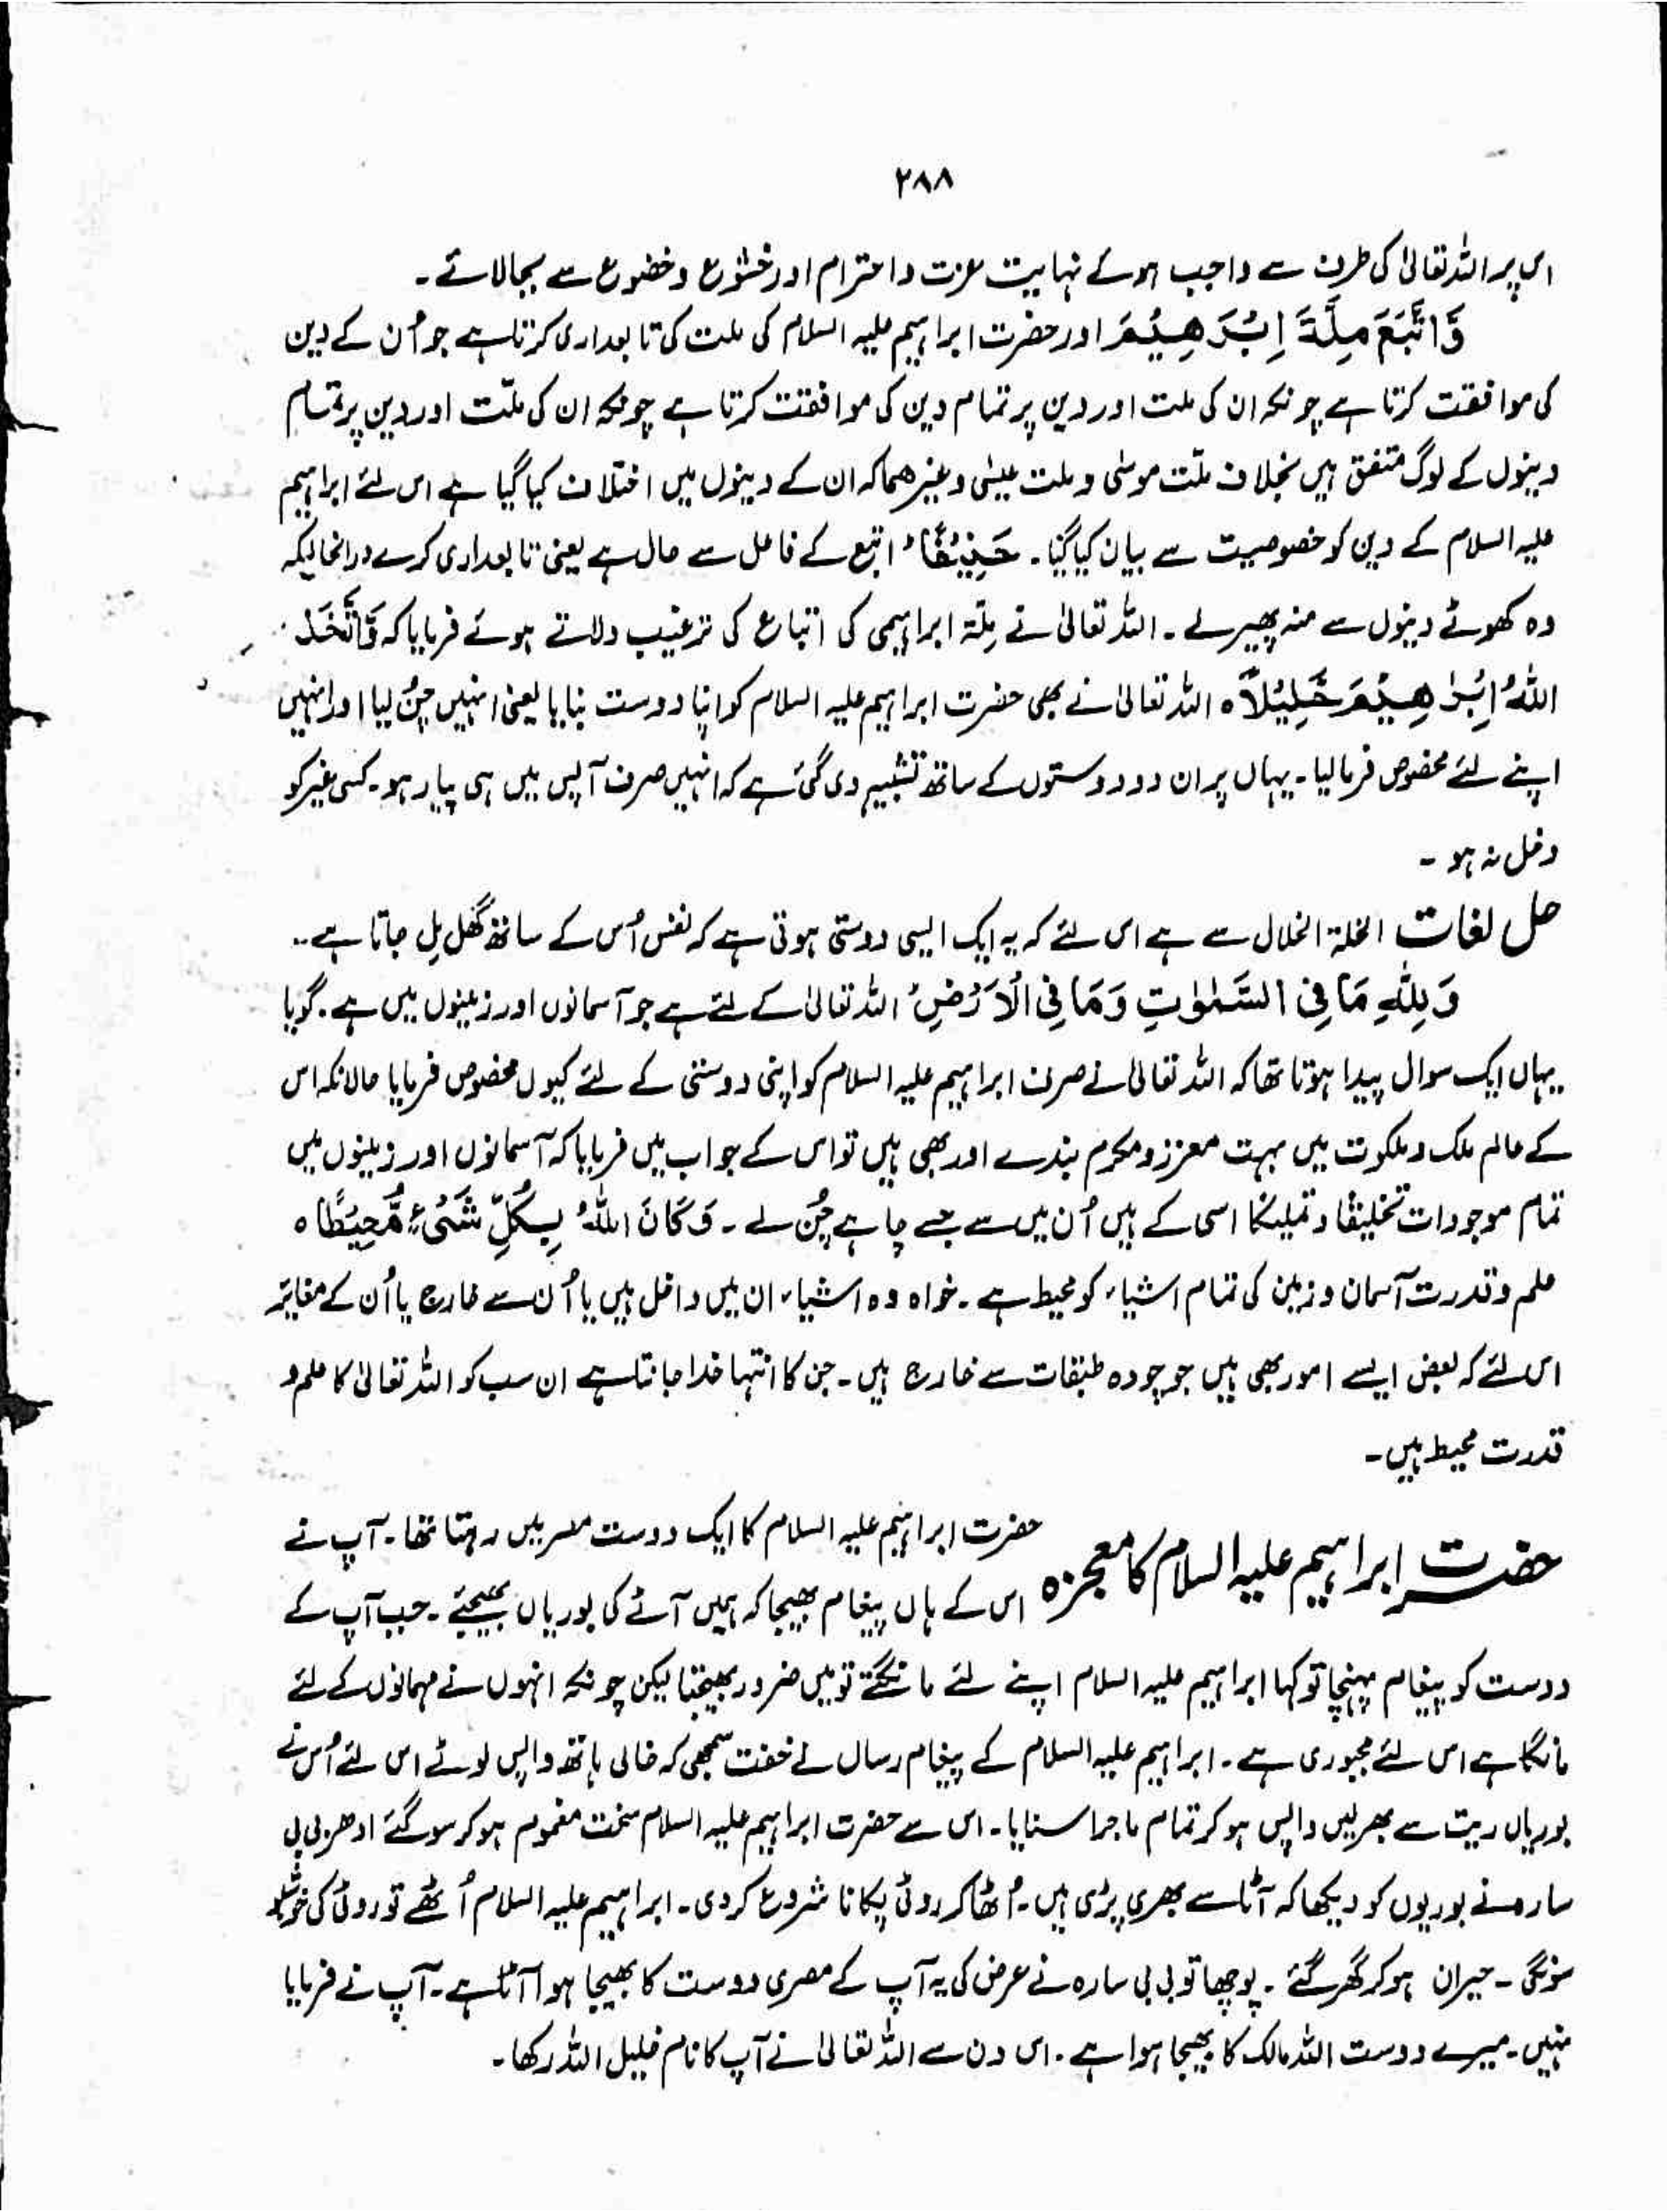 ۲۸۸
اس پر اللہ تعالیٰ کی طرف سے واجب ہوئے نہایت عزت واحترام اور خشوع وخضوع سے بجالائے۔
وَّاتَّبَعَ مِلَّةَ اِبْرٰهِيْمَ اور حضرت ابراہیم علیہ السلام کی ملت کی تابعداری کرتا ہے جو اُن کے دین
کی موافقت کرتا ہے چونکہ ان کی ملت اور دین پر تمام دین کی موافقت کرتا ہے چونکہ ان کی ملّت اور دین پر تمام
دینوں کے لوگ متفق ہیں بخلاف ملّت موسٰی وملت عیسٰی وغیرھما کہ ان کے دینوں میں اختلاف کیا گیا ہے اس لئے ابراہیم
علیہ السلام کے دین کو خصوصیت سے بیان کیا گیا۔ حَنِيْفًا، اتبع کے فاعل سے حال ہے یعنی تابعداری کرے درانحالیکہ
وہ کھوٹے دینوں سے منہ پھیرلے۔ اللہ تعالیٰ نے مِلّۃ ابراہیمی کی اتباع کی ترغیب دلاتے ہوئے فرمایا کہ وَاتَّخَذَ
اللّٰهُ اِبْرٰهِيْمَ خَلِيْلًا ہ اللہ تعالیٰ نے بھی حضرت ابراہیم علیہ السلام کو اپنا دوست بنایا یعنی انہیں چُن لیا اور انہیں
اپنے لئے مخصوص فرمالیا۔ یہاں پر ان دو دوستوں کے ساتھ تشبیہ دی گئی ہے کہ انہیں صرف آپس میں ہی پیار ہو۔ کسی غیر کو
دخل نہ ہو۔
حل لغات الخلۃ الخلال سے ہے اس لئے کہ یہ ایک ایسی دوستی ہوتی ہے کہ نفس اُس کے ساتھ گُھل مِل جاتا ہے۔
وَلِلّٰهِ مَا فِى السَّمٰوٰتِ وَمَا فِى الْاَرْضِ اللہ تعالیٰ کے لئے ہے جو آسمانوں اور زمینوں میں ہے۔ گویا
یہاں ایک سوال پیدا ہوتا تھا کہ اللہ تعالیٰ نے صرف ابراہیم علیہ السلام کو اپنی دوستی کے لئے کیوں مخصوص فرمایا حالانکہ اس
کے عالم ملک وملکوت میں بہت معزز ومکرم بندے اور بھی ہیں تو اس کے جواب میں فرمایا کہ آسمانوں اور زمینوں میں
تمام موجودات تخلیقًا وتملیکًا اسی کے ہیں اُن میں سے جسے چاہے چُن لے۔ وَكَانَ اللّٰهُ بِكُلِّ شَىْءٍ مُّحِيْطًا ہ
علم وقدرت آسمان وزمین کی تمام اشیاء کو محیط ہے۔ خواہ وہ اشیاء ان میں داخل ہیں یا اُن سے خارج یا اُن کے مغائر
اس لئے کہ بعض ایسے امور بھی ہیں جو چودہ طبقات سے خارج ہیں۔ جن کا انتہا خدا جانتا ہے ان سب کو اللہ تعالیٰ کا علم و
قدرت محیط ہیں۔
حضرت ابراہیم علیہ السلام کا معجزہ حضرت ابراہیم علیہ السلام کا ایک دوست مصر میں رہتا تھا۔ آپ نے
اس کے ہاں پیغام بھیجا کہ ہمیں آٹے کی بوریاں بھیجئے۔ جب آپ کے
دوست کو پیغام پہنچا تو کہا ابراہیم علیہ السلام اپنے لئے مانگتے تو میں ضرور بھیجتا لیکن چونکہ انہوں نے مہمانوں کے لئے
مانگا ہے اس لئے مجبوری ہے۔ ابراہیم علیہ السلام کے پیغام رساں نے خفت سمجھی کہ خالی ہاتھ واپس لوٹے اس لئے اُس نے
بوریاں ریت سے بھرلیں واپس ہو کر تمام ماجرا سنایا۔ اس سے حضرت ابراہیم علیہ السلام سخت مغموم ہوکر سوگئے ادھر بی بی
سارہ نے بوریوں کو دیکھا کہ آٹا سے بھری پڑی ہیں۔ اُٹھا کر روٹی پکانا شروع کردی۔ ابراہیم علیہ السلام اُٹھے تو روٹی کی خوشبو
سونگی۔ حیران ہوکر گھر گئے۔ پوچھا تو بی بی سارہ نے عرض کی یہ آپ کے مصری دوست کا بھیجا ہوا آٹا ہے۔ آپ نے فرمایا
نہیں۔ میرے دوست اللہ مالک کا بھیجا ہوا ہے۔ اس دن سے اللہ تعالیٰ نے آپ کا نام خلیل اللہ رکھا۔